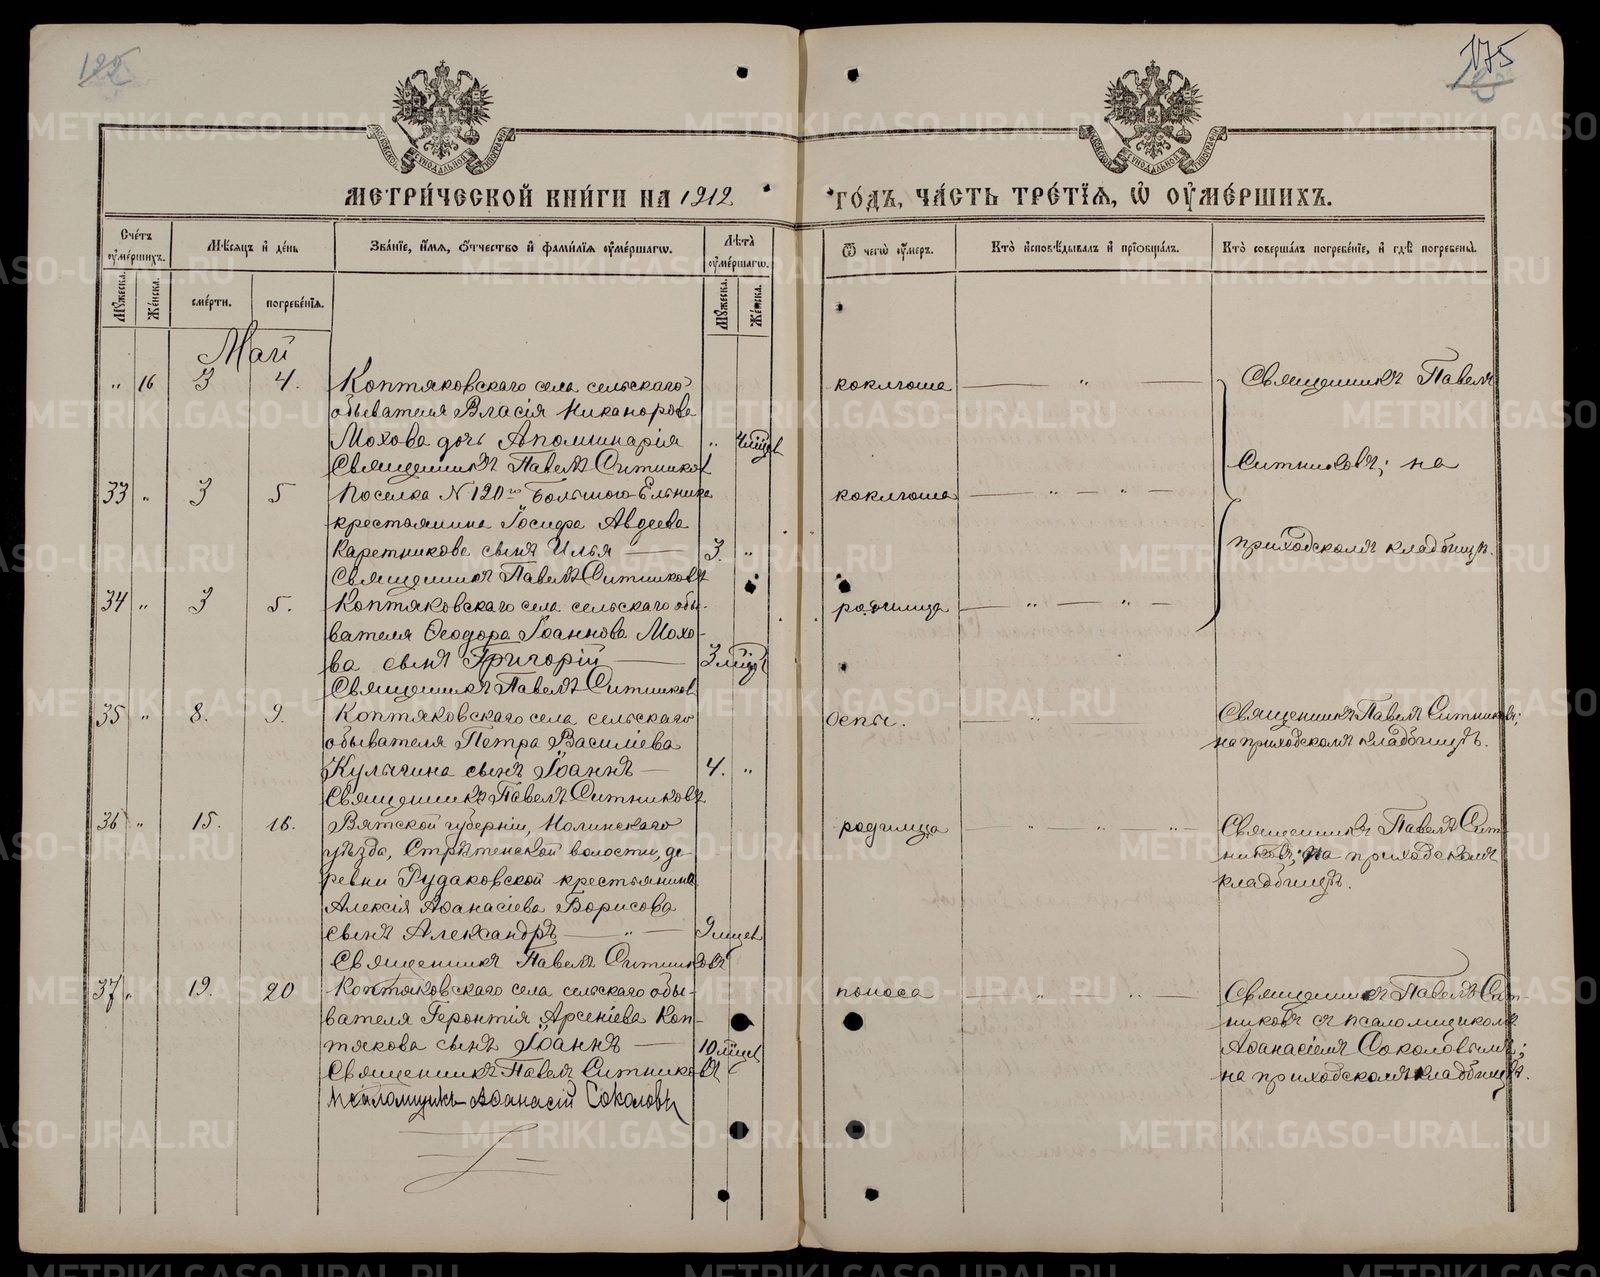 122
175
МЕТРИ́ЧЕСКОЙ КНИ́ГИ НА 1912 ГО́ДЪ, ЧА́СТЬ ТРЕ́ТІЯ, Ѿ ОУМЕ́РШИХЪ.
Сче́тъ оумéршихъ.
Мѣ́сяцъ и де́нь
Зва́ніе, и́мя, о́тчество и фами́лія оумéршагѡ.
Лѣта̀ оумéршагѡ.
Ѿ чегѡ̀ оу́меръ.
Кто̀ исповѣ́дывалъ и пріобща́лъ.
Кто̀ соверша́лъ погребе́ніе, и гдѣ̀ погребены̀.
Му́жеска.
Же́нска.
сме́рти.
погребе́нія.
Му́жеска.
Же́нска.
Май
" 16 3 4. Коптяковскаго села сельскаго
обывателя Власія Никанорова
Мохова дочь Аполлинарія " 4 мѣсяц
Священникъ Павелъ Ситников
коклюша — " —
Священникъ Павелъ
Ситниковъ; на
приходскомъ кладбищѣ.
33 " 3 5 Поселка N 120го Большого-Ельника
крестьянина Іосифа Авдеева
Каретникова сынъ Илья — 3. "
Священникъ Павелъ Ситниковъ
коклюша — " — " —
34 " 3 5. Коптяковскаго села сельскаго обы-
вателя Ѳеодора Іоаннова Мохо-
ва сынъ Григорій — 3 мѣсяц
Священникъ Павелъ Ситников
родимца — " — " —
35 " 8. 9. Коптяковскаго села сельскаго
обывателя Петра Василіева
Кулигина сынъ Іоаннъ — 4. "
Священникъ Павелъ Ситниковъ
Оспы. — " —
Священникъ Павелъ Ситниковъ;
на приходскомъ кладбищѣ.
36 " 15. 16. Вятской губерніи, Нолинскаго
уѣзда, Стрѣтенской волости, де-
ревни Рудаковской крестьянина
Алексія Аѳанасіева Борисова
сынъ Александръ — " — 9 мцев
Священникъ Павелъ Ситниковъ
родимца — " — " — " —
Священникъ Павелъ Сит-
никовъ; на приходскомъ
кладбищѣ.
37 " 19. 20 Коптяковскаго села сельскаго обы-
вателя Геронтія Арсеніева Коп-
тякова сынъ Іоаннъ — 10 мцев
Священникъ Павелъ Ситниковъ
Псаломщикъ Аѳанасій Соколовъ
поноса — " — " —
Священникъ Павелъ Сит-
никовъ съ псаломщикомъ
Аѳанасіемъ Соколовымъ;
на приходскомъ кладбищѣ.
METRIKI.GASO-URAL.RU